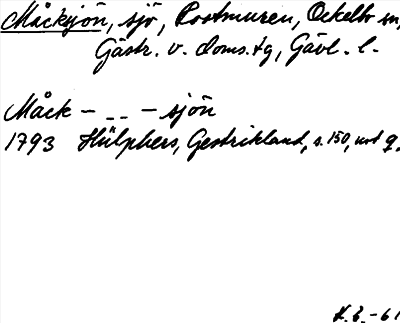 Måcksjön, sjö, Rostmuren, Ockelbo sn,
Gästr. v. doms. tg, Gävl. l.
Måck - - - - sjön
1793 Hülphers, Gestrikland, s. 150, not q.
K. E. - 61